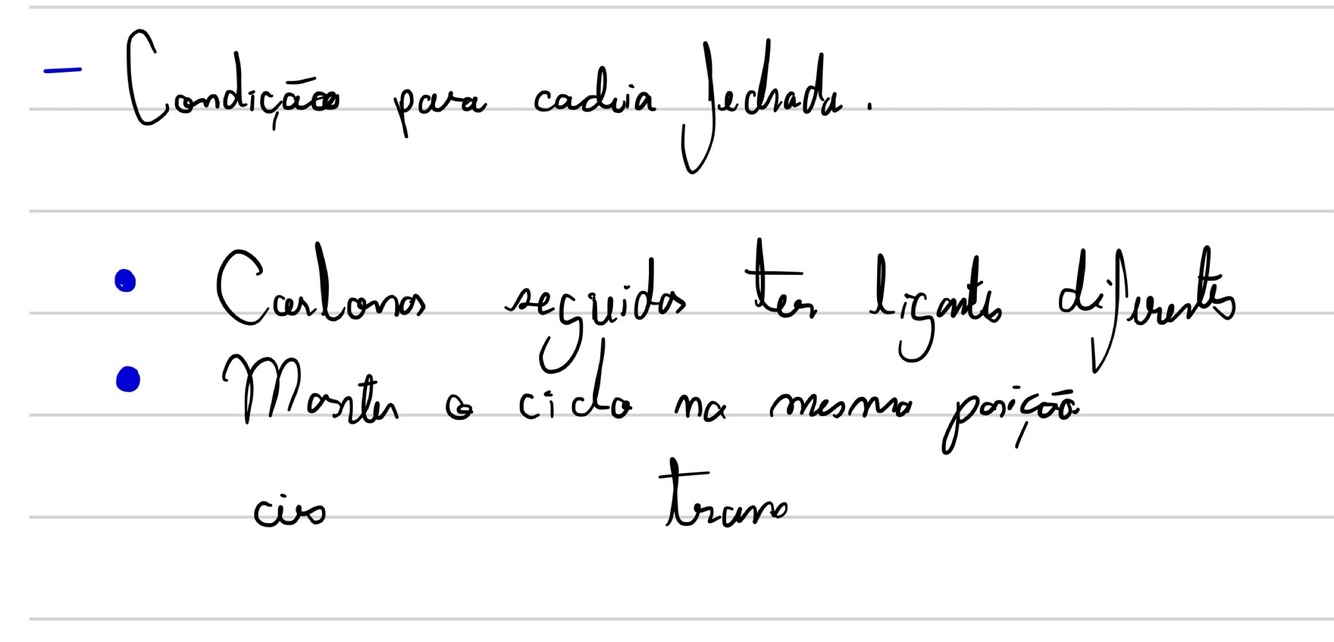 - Condição para cadeia fechada.
• Carbonos seguidos ter ligantes diferentes
• Manter o ciclo na mesma posição
cis trans